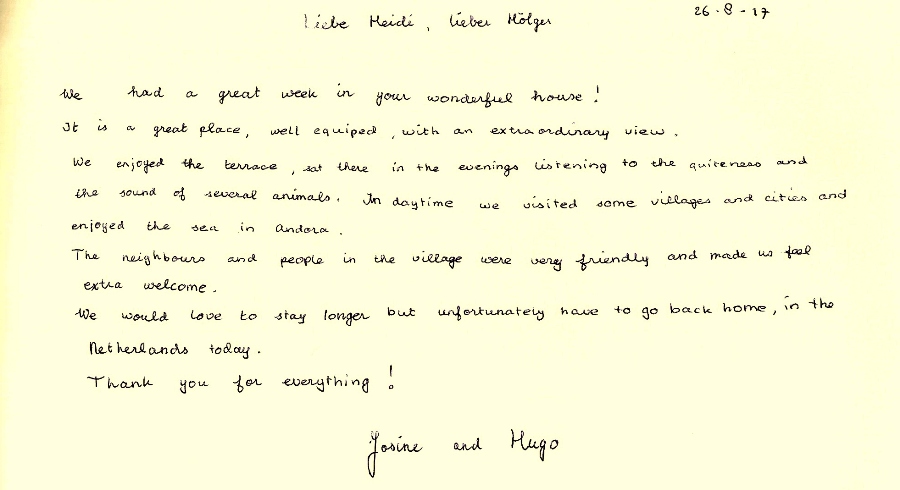 Liebe Heidi, lieber Hölger
26-8-17
We had a great week in your wonderful house!
It is a great place, well equiped, with an extraordinary view.
We enjoyed the terrace, sat there in the evenings listening to the quiteness and
the sound of several animals. In daytime we visited some villages and cities and
enjoyed the sea in Andora.
The neighbours and people in the village were very friendly and made us feel
extra welcome.
We would love to stay longer but unfortunately have to go back home, in the
Netherlands today.
Thank you for everything!
Josine and Hugo